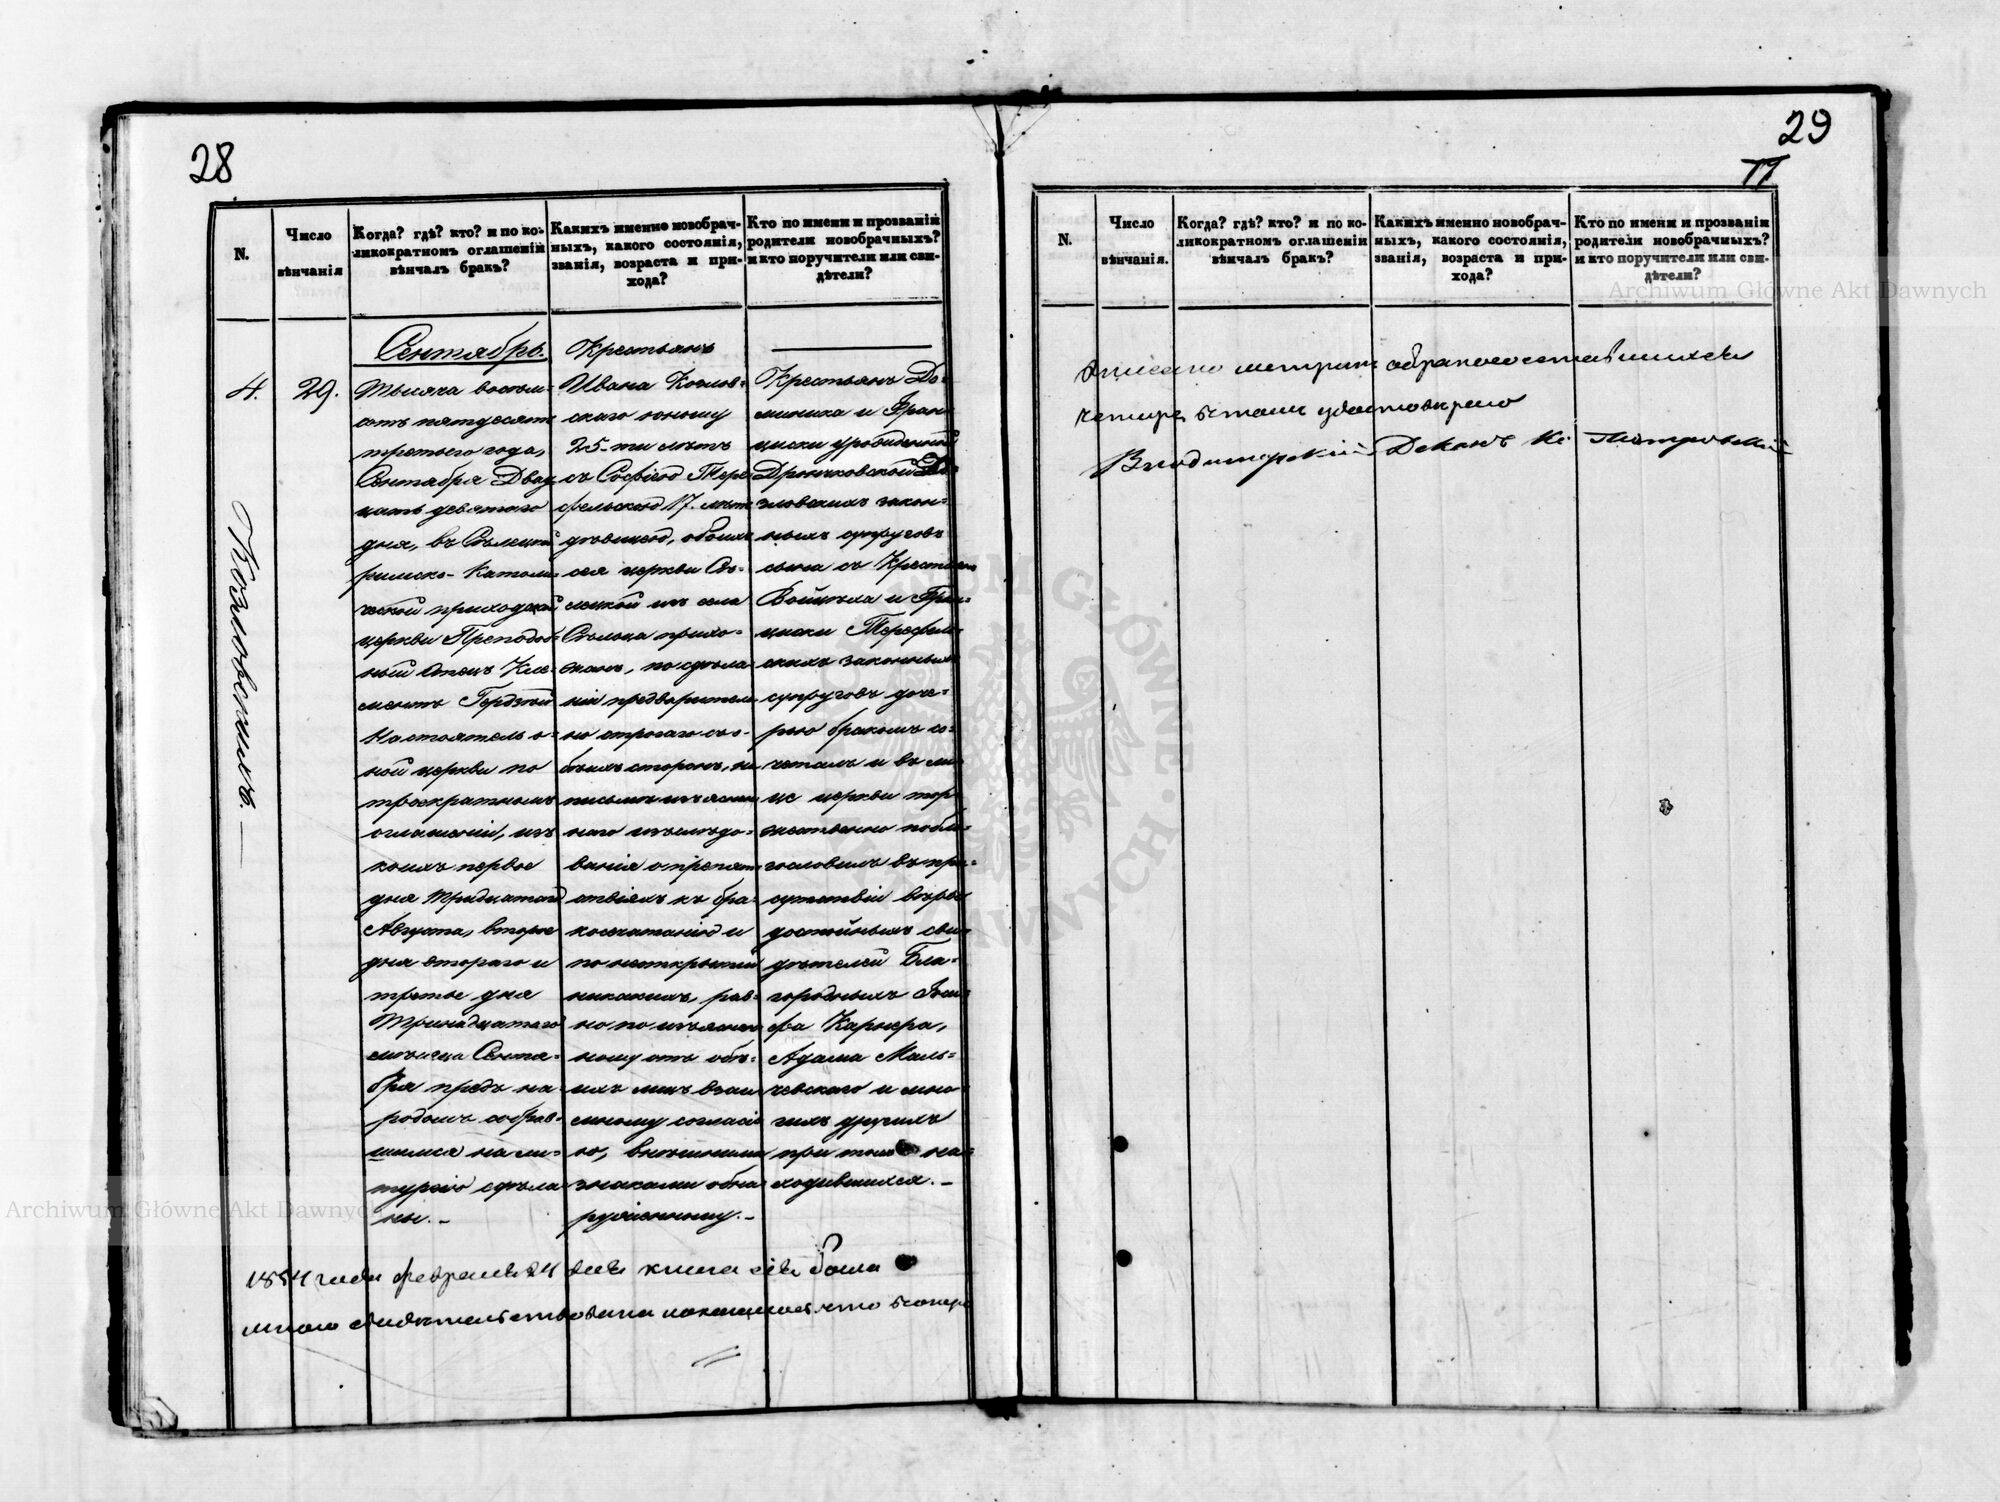 28
N.
Число
вѣнчанія
Когда? гдѣ? кто? и по ко-
ликократномъ оглашеніи
вѣнчалъ бракъ?
Какихъ именно новобрач-
ныхъ, какого состоянія,
званія, возраста и при-
хода?
Кто по имени и прозваніи
родители новобрачныхъ?
и кто поручители или сви-
дѣтели?
4.
29.
Козловскихъ. —
Сентябрь.
Тысяча восемь-
сотъ пятдесятъ
третьяго года,
Сентября Двад-
цать девятого
дня, въ Сѣлецкой
римско-Католи-
ческой приходской
церкви Преподоб-
ный Отецъ Кле-
ментъ
Настоятель о-
ной церкви по
троекратномъ
оглашеніи, изъ
коихъ первое
дня тридцатаго
Августа, второе
дня втораго и
третье дня
Тринадцатаго
мѣсяца Сентя-
бря предъ на-
родомъ собрав-
шимся на ли-
тургію сдѣла-
ны. –
Крестьянъ
Ивана Козлов-
скаго юношу
25-ти лѣтъ
съ Софіею Тере-
фельскою 17. лѣтъ
дѣвицею, обоихъ
сея церкви Сѣ-
лецкой изъ села
Сѣльца прихо-
жанъ, по сдѣла-
ніи предваритель-
но строгаго съ о-
боихъ сторонъ, на
письмѣ изъяснен-
наго изслѣдо-
ванія о препят-
ствіяхъ къ бра-
косочетанію и
по неоткрытіи
никакихъ, рав-
но по изъяснен-
ному отъ обѣ-
ихъ лицъ взаи-
мному согласі-
ю, внѣшними
знаками обна-
руженному. –
Крестьянъ До-
миника и Фран-
циски урожденной
Дрончковской Ко-
зловскихъ закон-
ныхъ супруговъ
сына съ Крестьянъ
Войцѣха и Фран-
циски Терефель-
скихъ законныхъ
супруговъ доче-
рью бракомъ со-
четалъ и въ ли-
це церкви тор-
жественно побла-
гословилъ въ при-
сутствіи вѣро-
достойныхъ сви-
дѣтелей Бла-
городныхъ Іоси-
фа Карнера,
Адама Маль-
чевскаго и мно-
гихъ другихъ
при томъ на-
ходившихся. –
1854 года февраля 24 дня книга сія была
мною свидѣтельствована и что въ оной
29
17
N.
Число
вѣнчанія.
Когда? гдѣ? кто? и по ко-
ликократномъ оглашеніи
вѣнчалъ бракъ?
Какихъ именно новобрач-
ныхъ, какого состоянія,
званія, возраста и при-
хода?
Кто по имени и прозваніи
родители новобрачныхъ?
и кто поручители или сви-
дѣтели?
метрикъ
четыре въ томъ удостовѣряю
Владимирскій Деканъ Кс.
Archiwum Główne Akt Dawnych
Archiwum Główne Akt Dawnych